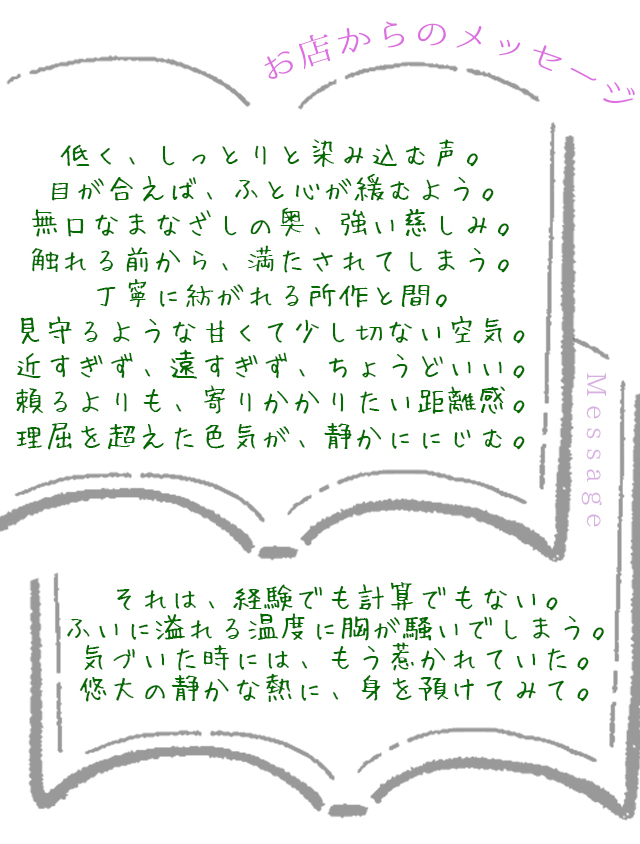 お店からのメッセージ
低く、しっとりと染み込む声。
目が合えば、ふと心が緩むよう。
無口なまなざしの奥、強い慈しみ。
触れる前から、満たされてしまう。
丁寧に紡がれる所作と間。
見守るような甘くて少し切ない空気。
近すぎず、遠すぎず、ちょうどいい。
頼るよりも、寄りかかりたい距離感。
理屈を超えた色気が、静かににじむ。
Message
それは、経験でも計算でもない。
ふいに溢れる温度に胸が騒いでしまう。
気づいた時には、もう惹かれていた。
悠大の静かな熱に、身を預けてみて。